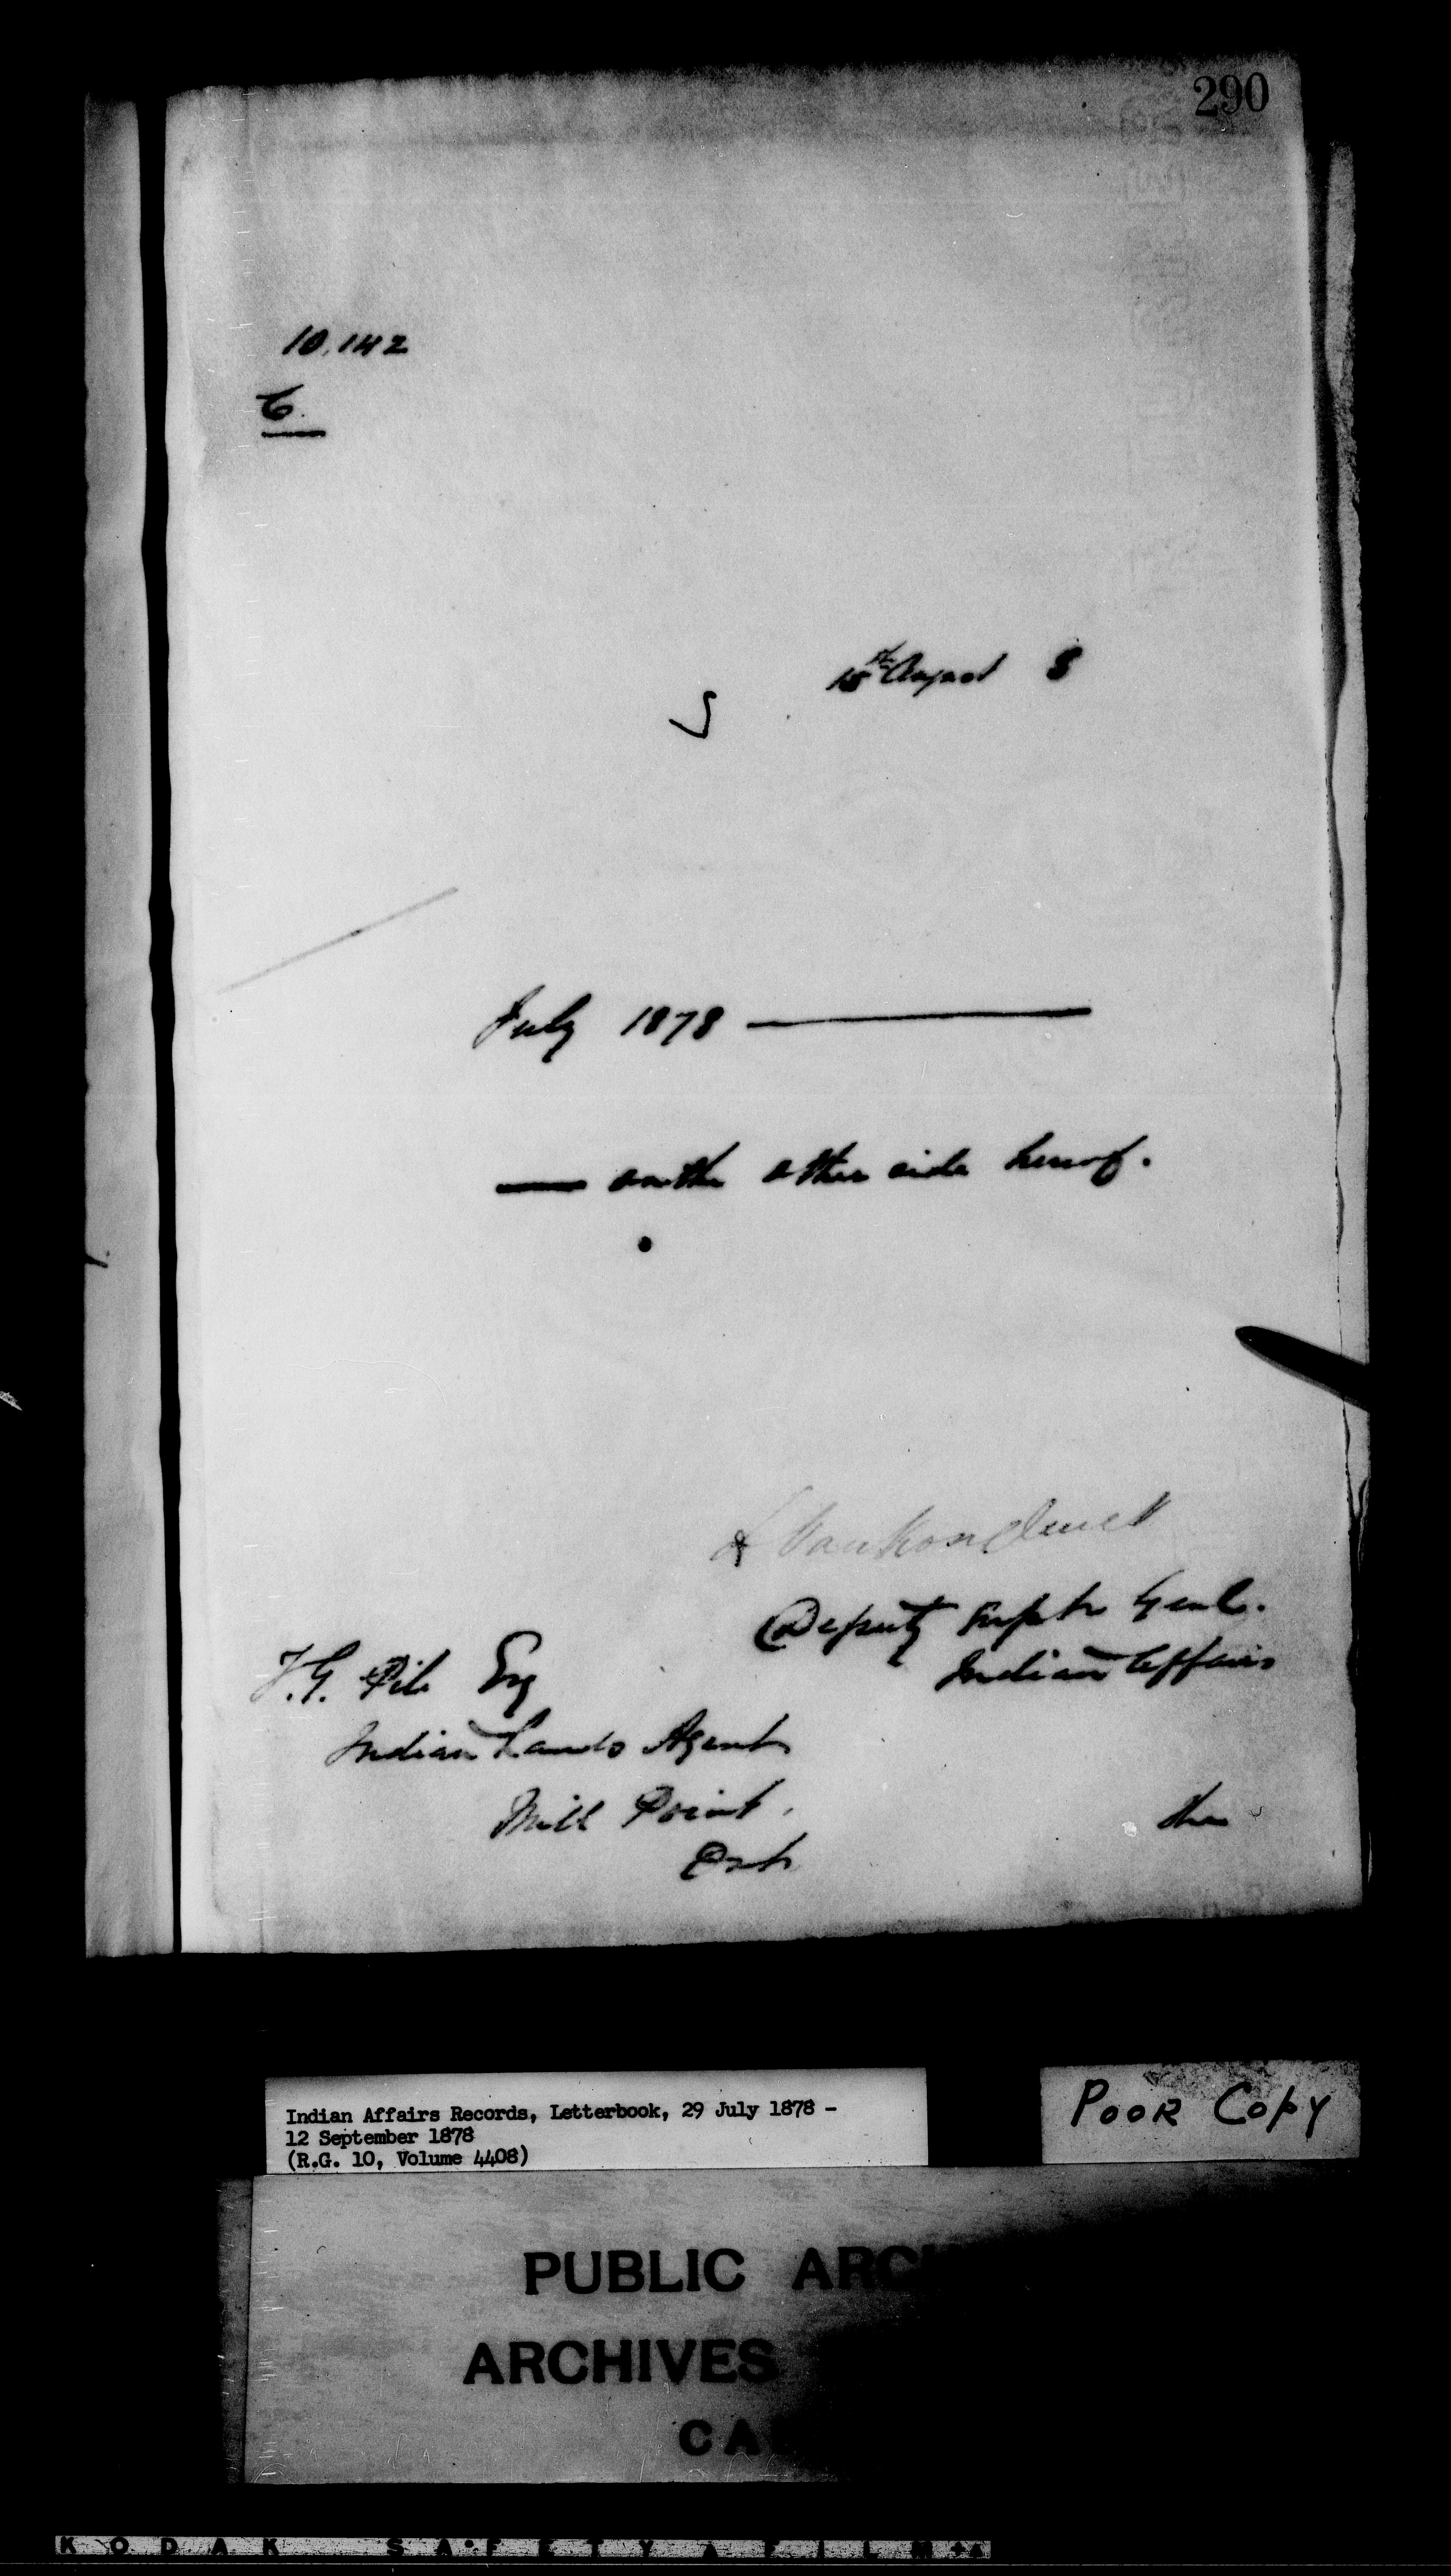 290
10.142
C.
15th August 8
July 1878 ————
—— on the other side hereof.
L Vankoughnet
Deputy Supt. Genl.
Indian Affairs
T.G. Pile Esq
Indian Lands Agent
Mill Point,
Ont
the
Indian Affairs Records, Letterbook, 29 July 1878 -
12 September 1878
(R.G. 10, Volume 4408)
POOR COPY
PUBLIC ARC
ARCHIVES
CA
KODAK SAFETY FILM